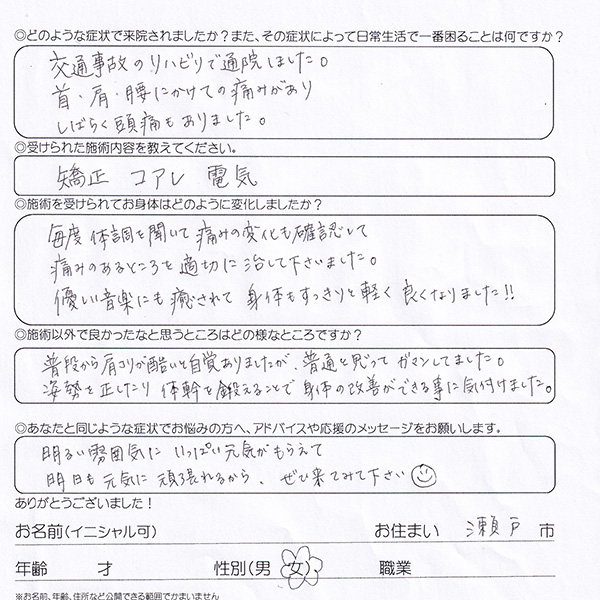 ◎どのような症状で来院されましたか？また、その症状によって日常生活で一番困ることは何ですか？
交通事故のリハビリで通院しました。
首・肩・腰にかけての痛みがあり
しばらく頭痛もありました。
◎受けられた施術内容を教えてください。
矯正 コアレ 電気
◎施術を受けられてお身体はどのように変化しましたか？
毎度 体調を聞いて 痛みの変化も確認して
痛みのあるところを適切に治して下さいました。
優しい音楽にも癒されて 身体もすっきりと軽く 良くなりました!!
◎施術以外で良かったなと思うところはどの様なところですか？
普段から肩コリが酷いと自覚ありましたが、普通と思って ガマンしてました。
姿勢を正したり 体幹を鍛えることで 身体の改善ができる事に気付けました。
◎あなたと同じような症状でお悩みの方へ、アドバイスや応援のメッセージをお願いします。
明るい雰囲気に いっぱい元気がもらえて
明日も元気に頑張れるから、ぜひ来てみて下さい
ありがとうございました！
お名前(イニシャル可) お住まい 瀬戸 市
年齢 才 性別(男 女) 職業
※お名前、年齢、住所など公開できる範囲でかまいません